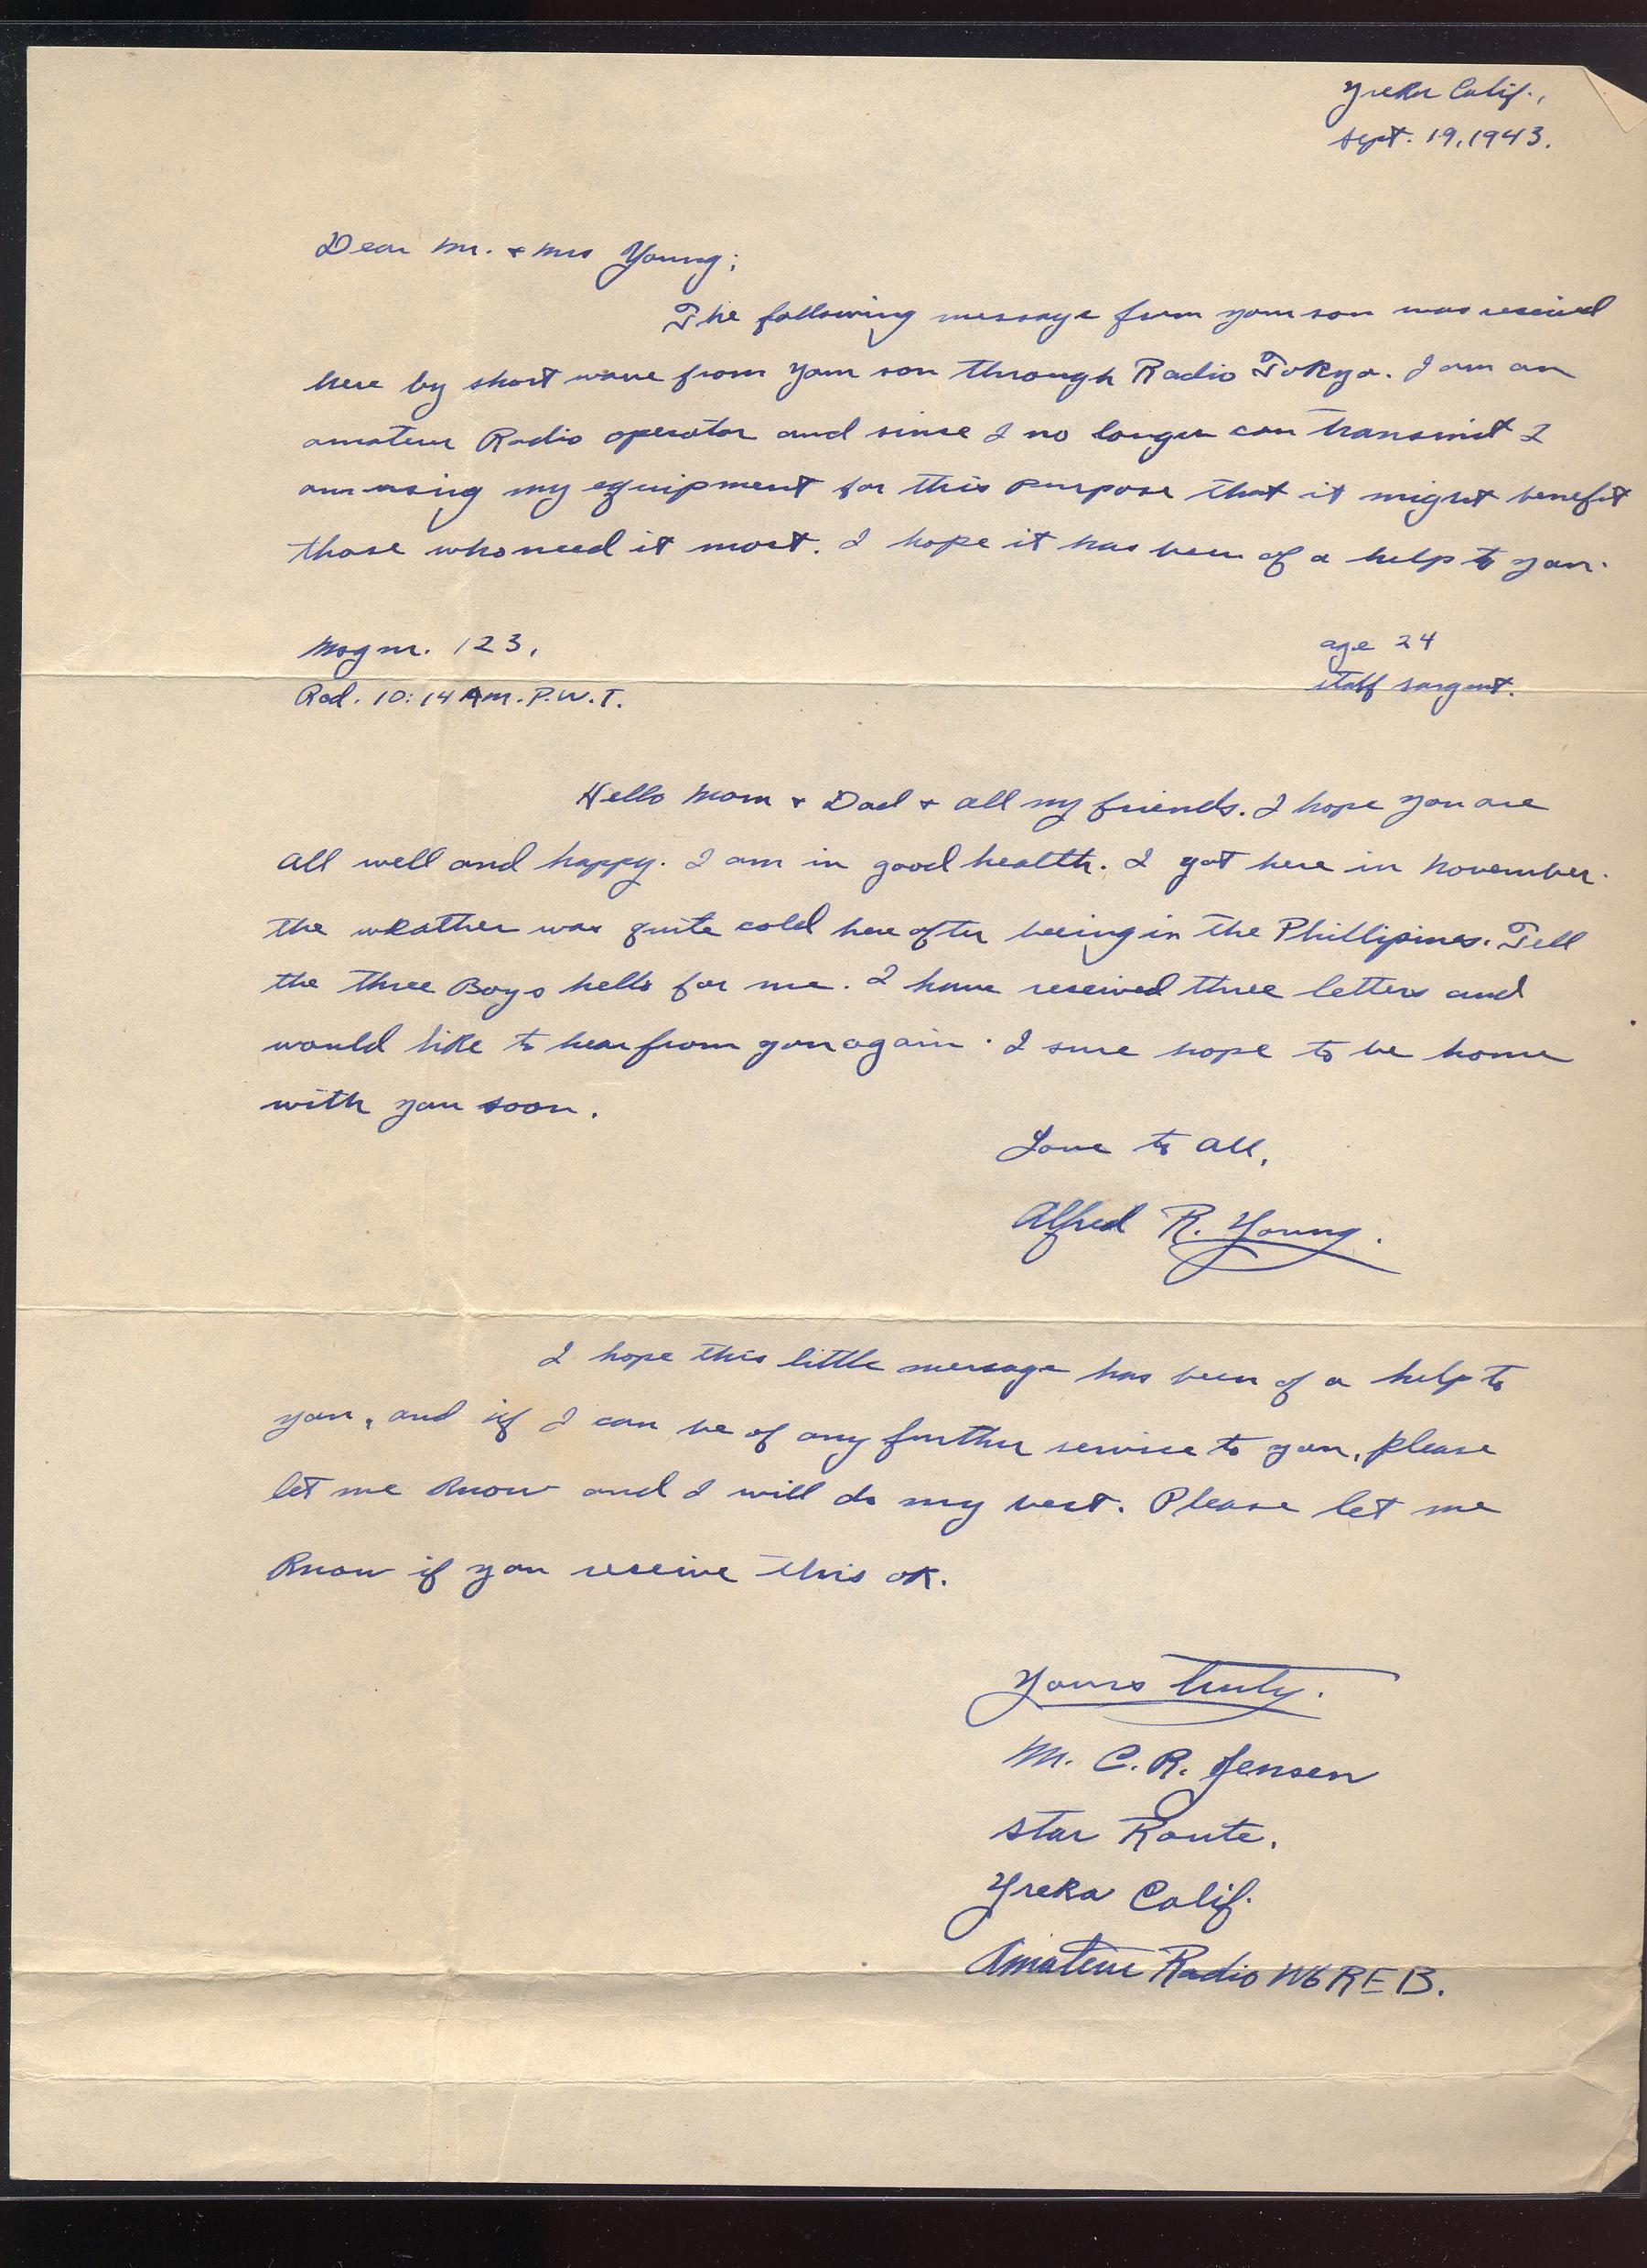 Yreka Calif.,
Sept. 19, 1943.
Dear Mr. & Mrs Young;
The following message from your son was received
here by short wave from your son through Radio Tokyo. I am an
amateur Radio operator and since I no longer can transmit I
am using my equipment for this purpose that it might benefit
those who need it most. I hope it has been of a help to you.
Msg nr. 123,
age 24
Rcd. 10:14 AM. P.W.T.
staff sargent.
Hello Mom & Dad & all my friends. I hope you are
all well and happy. I am in good health. I got here in November.
the weather was quite cold here after being in the Phillipines. Tell
the three Boys hello for me. I have received three letters and
would like to hear from you again. I sure hope to be home
with you soon.
Love to all,
Alfred R. Young.
I hope this little message has been of a help to
you, and if I can be of any further service to you, please
let me know and I will do my best. Please let me
know if you receive this ok.
Yours truly.
Mr. C. R. Jensen
Star Route.
Yreka Calif.
Amateur Radio W6REB.